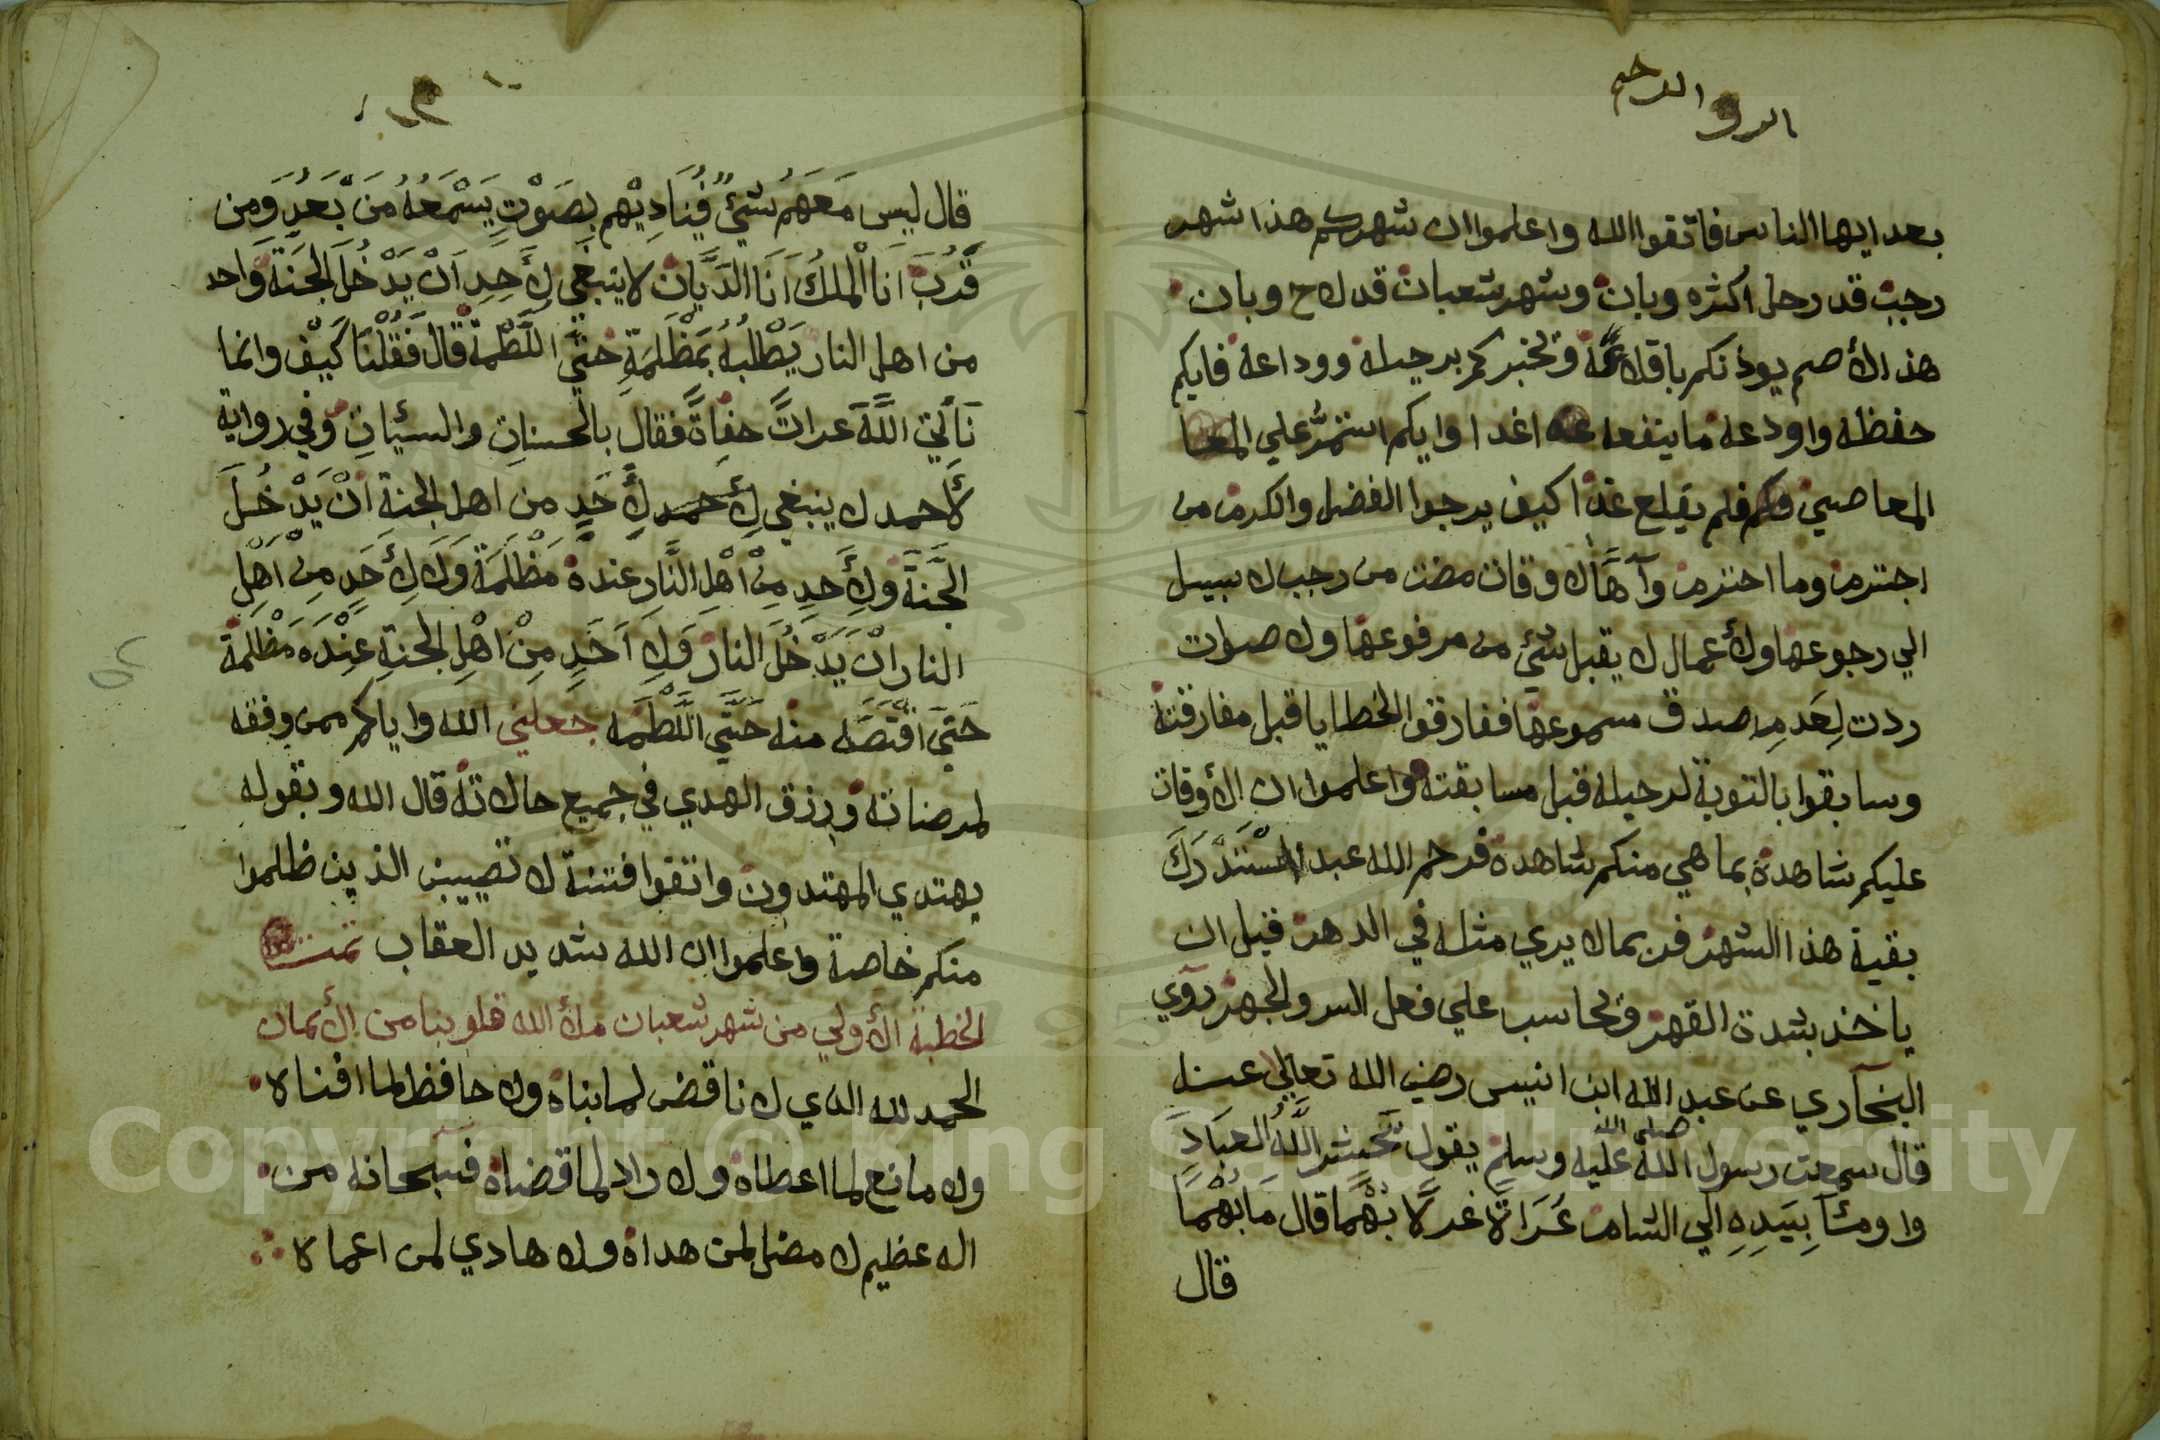 بعد ايها الناس فاتقوا الله واعلموا ان شهركم هذا شهر
رجب قد رحل اكثره وبان وشهر شعبان قد لاح وبان
هذا الأصم يوذنكم باقلاعه ونخبركم برحيله ووداعه فايكم
حفظه واودعه ما ينفعه غدا وايكم استمر علي المعا
المعاصي فلم يقلع غدا كيف يرجوا الفضل والكرم من
اجترم وما احترم وآهًا لاوقات مضت من رجب لا سبيل
الي رجوعها ولأعمال لا يقبل شئ من مرفوعها ولا صوات
ردت لِعَدمِ صدق مسموعها ففارقوا الخطايا قبل مفارقته
وسابقوا بالتوبة لرحيله قبل مسابقته واعلموا ان الأوقات
عليكم شاهدة بما هي منكم شاهدة فرحم الله عبدا اسْتَدْرَكَ
بقية هذا الشهر فربما لا يري مثله في الدهر قبل ان
ياخذ بشدة القهر ونحاسب علي فعل السر والجهر روي
البخاري عن عبد الله ابن انيس رضي الله تعالي عنه
قال سمعت رسول الله صلى الله عليه وسلم يقول تحشر اللَّهُ العِبَادَ
واومئآ بِيَدِهِ الي الشام عُرَاةً غرلًا بُهْمًا قال مَا بُهْمًا
قال
قال ليس مَعَهُم شئٌ فُينَادِيْهم بِصَوْتٍ يَسْمَعُهُ مَنَ بَعُدَ وَمن
قَرُبَ اَنَا الْملكُ اَنَا الدَّيَّان لا ينبغي لِأَحِدِ اَنْ يَدْخُلَ الجَنَةَ وَاحد
من اهل النار يَطْلبُهُ بَمَظْلمَةٍ حتَّي اللَّطْمَة قَالَ فَقُلْنَا كَيْف وانما
نَأْتِي اللَّهَ عراتً حفاةً فقال بالحسناتِ والسيئاتِ وفي رواية
لأحد لا ينبغي لِأَحد لِأَحَدٍ من اهل الجنة اَنْ يَدْخُلَ
الجَّنةَ ولِأَحدٍ مِنْ اَهْلِ النَّارِ عنده مَظْلَمَة وَلَا لِأَحَدٍ مِنْ اَهْلِ
النار انْ يَدْخُلَ النار وَلِاَحَدٍ مِنْ اَهْلِ الجنةِ عِنْدَه مَظْلَمَة
حَتَيَ اقْتَصَّه منه حَتَّي اللَّطْمَه جعلني الله واياكم ممن وفقه
لمرضاته ورزق الهدي في جميع حالاته قال الله وبقوله
يهتدي المهتدون واتقوا فتنة لا تصيبن الذين ظلموا
منكم خاصة واعلموا ان الله شديد العقاب تمت
الخطبة الأولي من شهر شعبان ملأ الله قلوبنا من الأيمان
الحمد لله الذي لا ناقض لما بناه ولا حافظ لما افناه
ولا مانع لما اعطاه ولا راد لما قضاه فسبحانه من
اله عظيم لا مضل لمن هداه ولا هادي لمن اعماه
Copyright © King Saud University